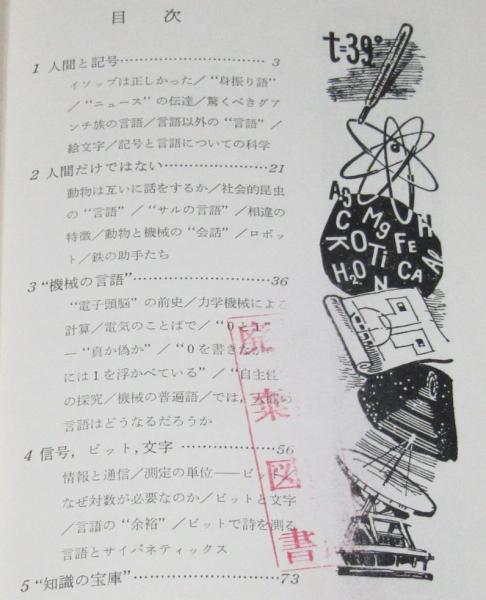 目次
1 人間と記号……………………3
イソップは正しかった/“身振り語”
/“ニュース”の伝達/驚くべきダア
ンチ族の言語/言語以外の“言語”/
絵文字/記号と言語についての科学
2 人間だけではない………………21
動物は互いに話をするか/社会的昆虫
の“言語”/“サルの言語”/相違の
特徴/動物と機械の“会話”/ロボッ
ト/鉄の助手たち
3 “機械の言語”…………………36
“電子頭脳”の前史/力学機械による
計算/電気のことばで/“0と1”
―“真か偽か”/“0を書きた
には1を浮かべている”/“自主性
の探究/機械の普遍語/では,
言語はどうなるだろうか
4 信号,ビット,文字………………56
情報と通信/測定の単位――ビット/
なぜ対数が必要なのか/ビットと文字
/言語の“余裕”/ビットで詩を測る
言語とサイバネティックス
5 “知識の宝庫”…………………73
t=39°
Ag
C
Mg
H
K
O
Ti
FE
Al
H2O
N
CA
棄
図
書